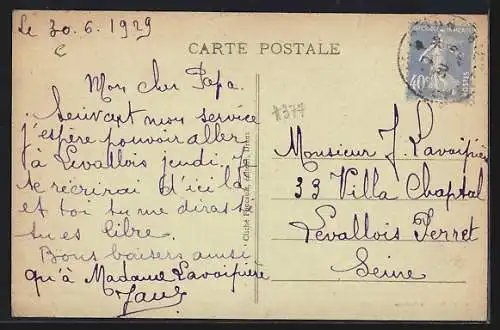 Le 30.6.1929
CARTE POSTALE
Mon cher Papa.
Suivant mon service
j'espère pouvoir aller
à Levallois jeudi. Je
te récrirai d'ici là
et toi tu me diras si
tu es libre.
Bons baisers ainsi
qu'à Madame Lavaipière
1377
Monsieur J. Lavaipière
33 Villa Chaptal
Levallois Perret
Seine
40c
POSTES